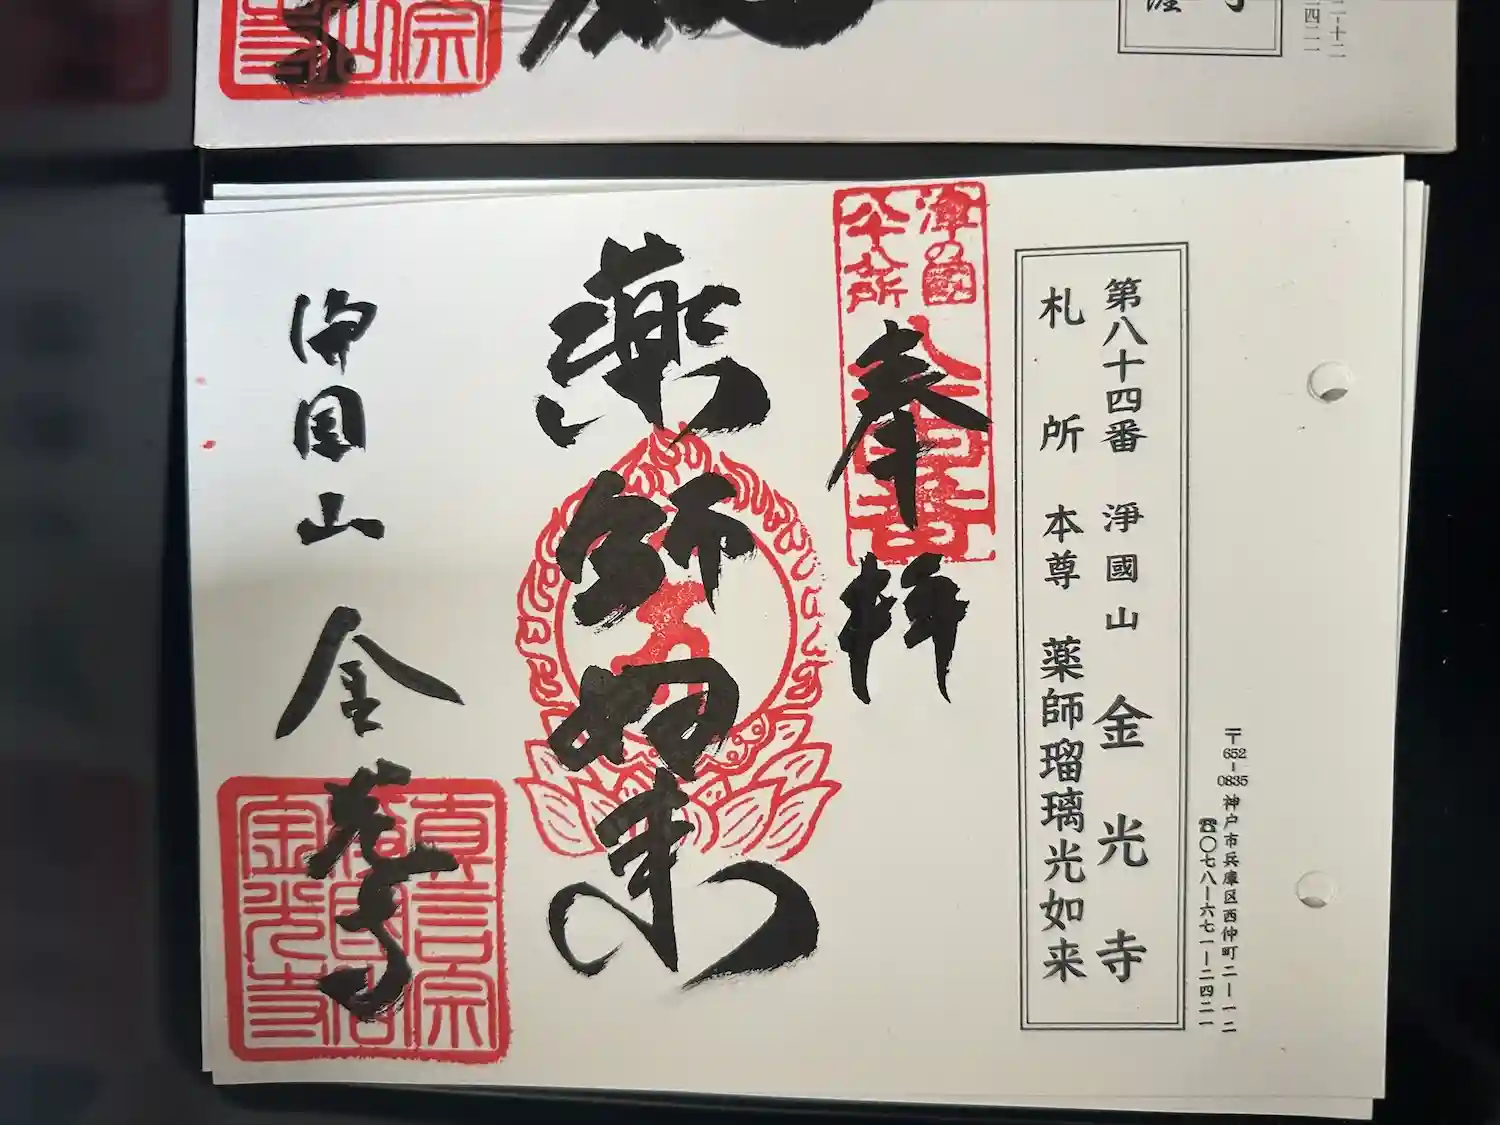 〒652-0835 神戸市兵庫区西仲町二ー一二
☎〇七八ー六七一ー二四二一
第八十四番 淨國山 金光寺
札所本尊 薬師瑠璃光如来
津の國
八十八所
八十四番
奉拝
薬師如来
浄国山 金光寺
真言宗
淨國山
金光寺
宗
寺